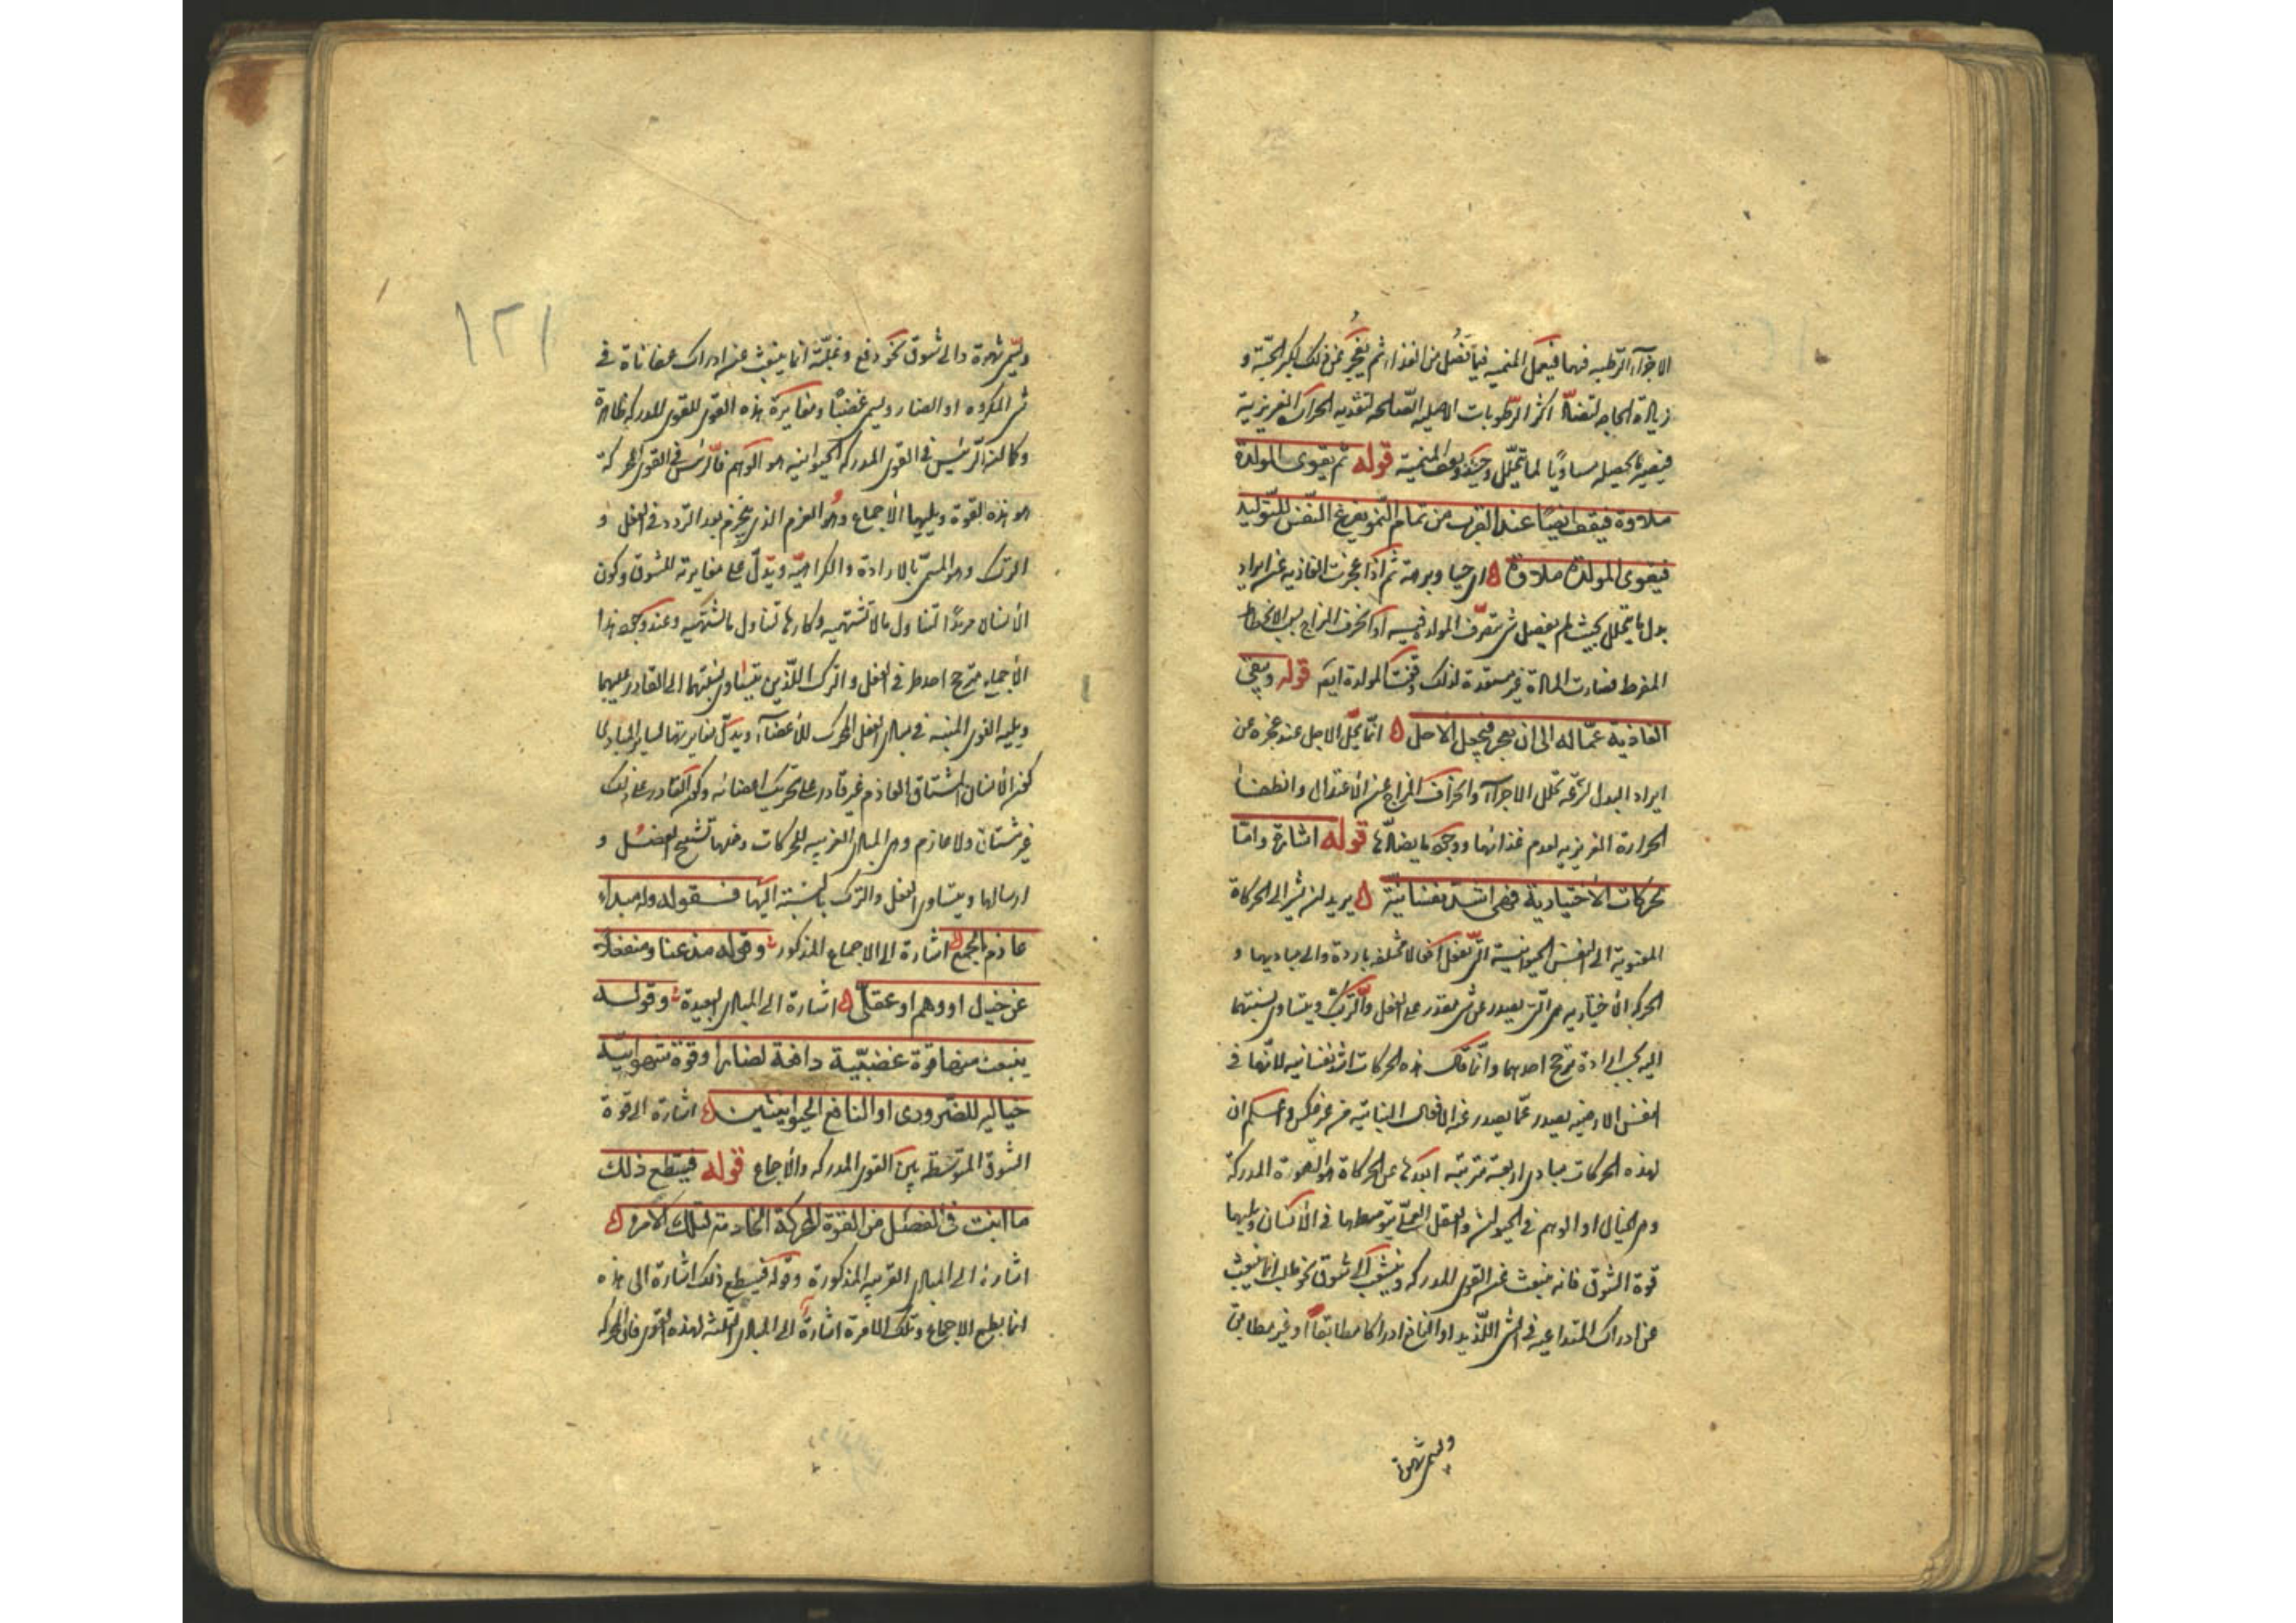 الاجزاء الرطبه فيها فيعمل المنميه فيما تفضل من الغذاء ثم يعجز عن ذلك لكبر الجثة و
زيادة الحاجه لتضا اكثر الرطوبات الاصليه الصالحه لتغذيه الحرارة الغريزية
فيصير ما يحصله مساويا لما يتحلل وحينئذ يقف المنمية قوله ثم يقوى المولدة
ملاوة فيقف ايضا عند القرب من تمام النمو يفرغ النفس للتوليد
فيقوى المولدة ملاوة اى حينا وبرهة ثم اذا عجزت الغاذيه عن ايراد
بدل ما يتحلل بحيث لم يفضل شى يتصرف المولدة فيه او انحرف المزاج بسبب الانحطاط
المفرط فصارت المادة غير مستعدة لذلك وقفت المولدة ايضا قوله ويبقى
الغاذية عمالة الى ان يعجز فيحل الاجل انما يحل الاجل عند عجزه عن
ايراد البدل لسرعه تحلل الاجزاء وانحراف المزاج عن الاعتدال وانطفاء
الحرارة الغريزيه لعدم غذائها ووجود ما يضادها قوله اشارة واما
حركات الاختيارية فهى اشد نفسانية يريد ان يشير الى الحركات
المنسوبة الى النفس الحيوانية التى تفعل افعالا مختلفه بارادة والى مباديها و
الحركه الاختياريه هى التى يصدر عن شى يقدر على الفعل والترك ويتساوى نسبتهما
اليه بحسب ارادة ترجح احدهما وانما قال هذه الحركات اشد نفسانيه لانها فى
انفس الارضيه يصدر عما يصدر عنه الافعال النباتية من غير عكس واعلم ان
لهذه الحركات مبادى اربعة مترتبه ابعدها عن الحركات هو القوة المدركة
وهى الخيال او الوهم فى الحيوان والعقل العملى بتوسطهما فى الانسان ويليها
قوة الشوق فانه ينبعث عن القوى المدركه وينشعب الى شوق نحو طلب انما ينبعث
عن ادراك الملائمه فى الشى اللذيذ او النافع ادراكا مطابقا او غير مطابق
ويسمى شهوة
١٢١
ويسمى شهوة والى شوق نحو دفع وغلبة انما ينبعث عن ادراك منافاة فى
شى المكروه او الضار ويسمى غضبا ومغايرة هذه القوى للقوى المدركه ظاهرة
وكما ان الرئيس فى القوى المدركه الحيوانيه هو الوهم فالرئيس فى القوى المحركة
هو هذه القوة ويليها الاجماع وهو العزم الذى ينجزم بعد التردد فى الفعل و
الترك وهو المسمى بالارادة والكراهية ويدل على مغايرته للشوق وكون
الانسان مريدا لتناول ما لا تشتهيه وكارها لتناول ما تشتهيه وعند وجود هذا
الاجماع يترجح احد طرفى الفعل والترك اللذين يتساوى نسبتهما الى القادر عليهما
ويليه القوى المنبثه فى مبادى العضل المحرك للاعضاء ويدل مغايرتها لساير المبادى
كون الانسان المشتاق العازم غير قادر على تحريك اعضائه وكون القادر على ذلك
غير مشتاق ولا عازم وهى المبادى القريبه للحركات وفعلها تشنج العضل و
ارسالها ويتساوى الفعل والترك بالنسبة اليها فقوله وله مبدا
عازم مجمع اشارة الى الاجماع المذكور وقوله مذعنا ومنفعلا
عن خيال او وهم او عقل اشارة الى المبادى البعيدة وقوله
ينبعث عنها قوة غضبية دافعة لضار او قوة شهوانية
جالبه للضرورى او النافع الحيوانيين اشارة الى قوة
الشوق المتوسطه بين القوى المدركه والاجماع قوله فيطيع ذلك
ما انبث فى العضل من القوة المحركة الخادمة لتلك الامرة
اشارة الى المبادى القريبه المذكورة وقوله فيطيع ذلك اشارة الى هذه
انما يطيع الاجماع وتلك الامرة اشارة الى المبادى الثلثه لهذه القوى فان المحركه